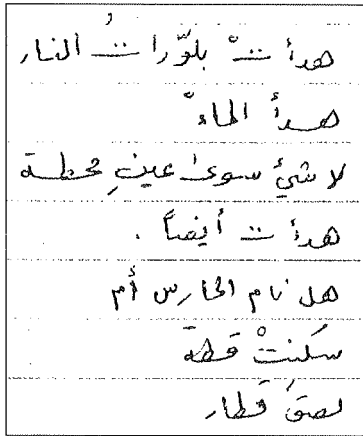 هدأتْ بلوّراتُ النار
هدأ الماءْ
لا شئ سوى عينِ محطة
هدأت أيضاً .
هل نام الحارس أم
سكنتْ قطة
لصقَ قطار